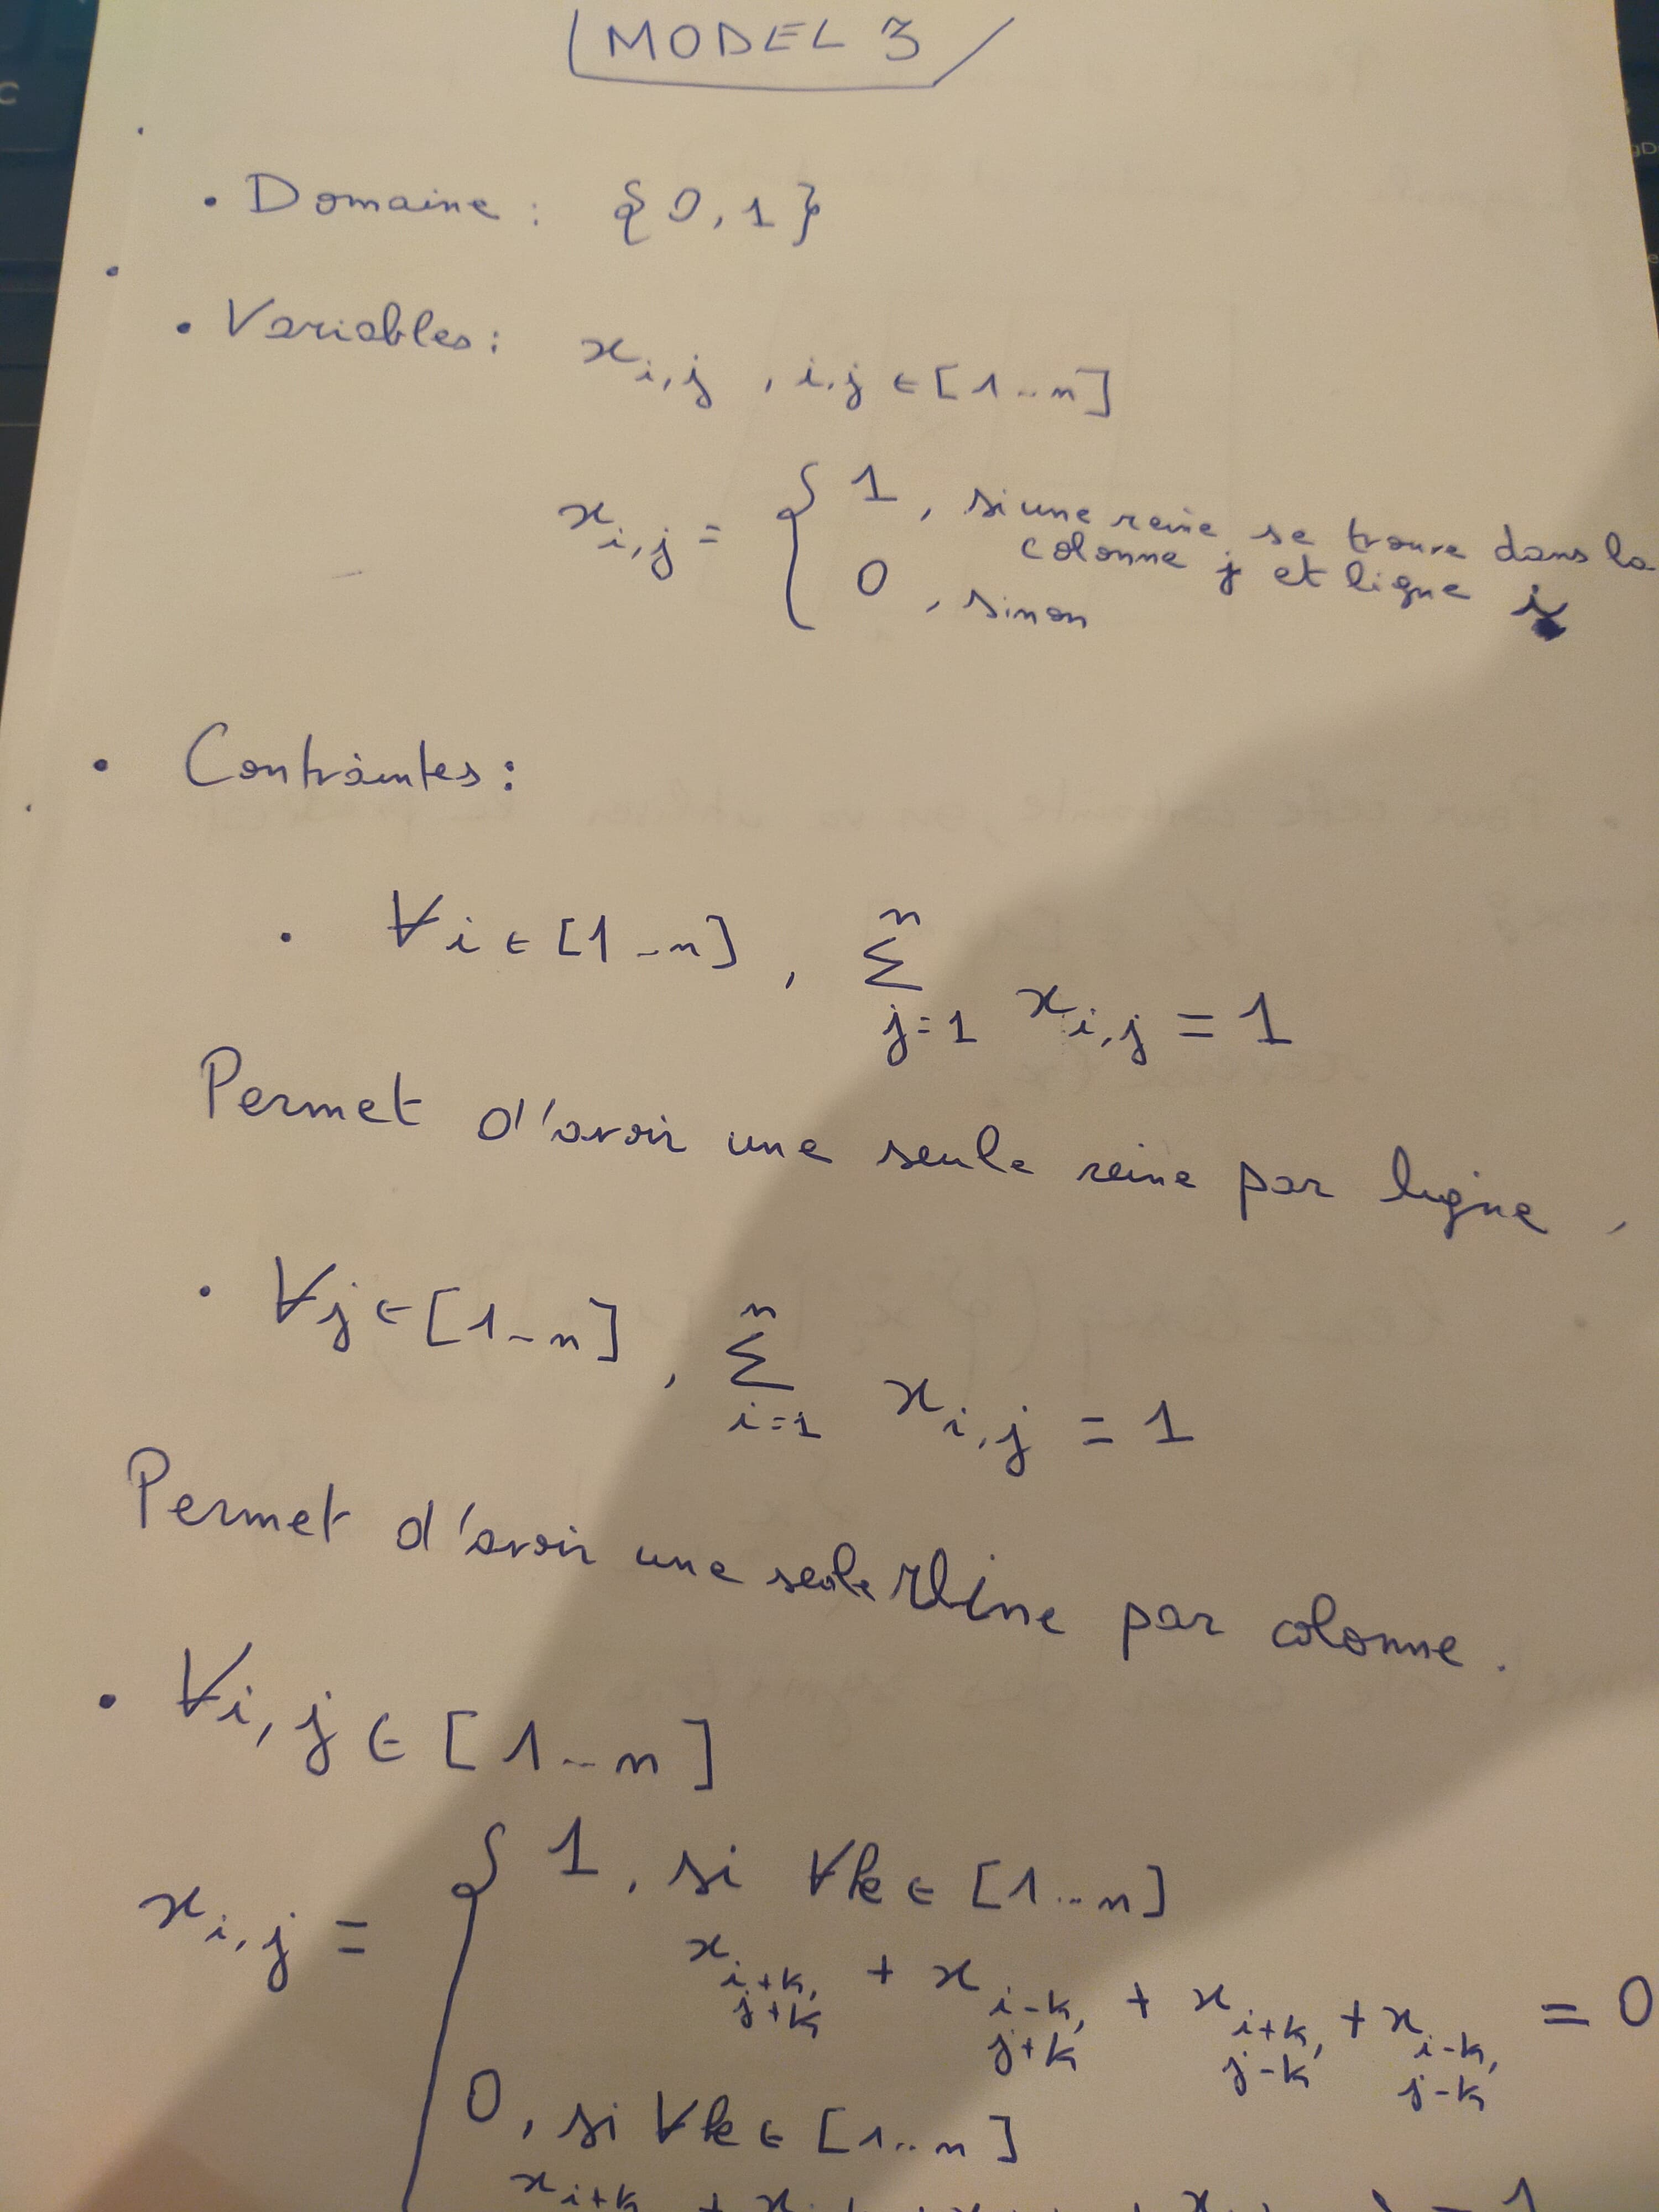 MODEL 3
• Domaine : {0,1}
• Variables: x_{i,j} , i,j ∈ [1..n]
x_{i,j} = { 1, si une reine se trouve dans la
colonne j et ligne i
0, sinon
• Contraintes:
• ∀i ∈ [1..n], ∑_{j=1}^{n} x_{i,j} = 1
Permet d'avoir une seule reine par ligne.
• ∀j ∈ [1..n], ∑_{i=1}^{n} x_{i,j} = 1
Permet d'avoir une seule reine par colonne.
• ∀i,j ∈ [1..n]
x_{i,j} = { 1, si ∀k ∈ [1..n]
x_{i+k, j+k} + x_{i-k, j+k} + x_{i+k, j-k} + x_{i-k, j-k} = 0
0, si ∀k ∈ [1..n]
x_{i+k